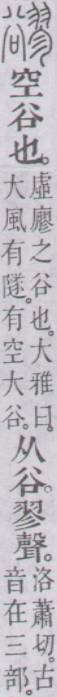 䜍空谷也。
虛廫之谷也。大雅曰。
大風有隧。有空大谷。
从谷。翏聲。
洛蕭切。古
音在三部。